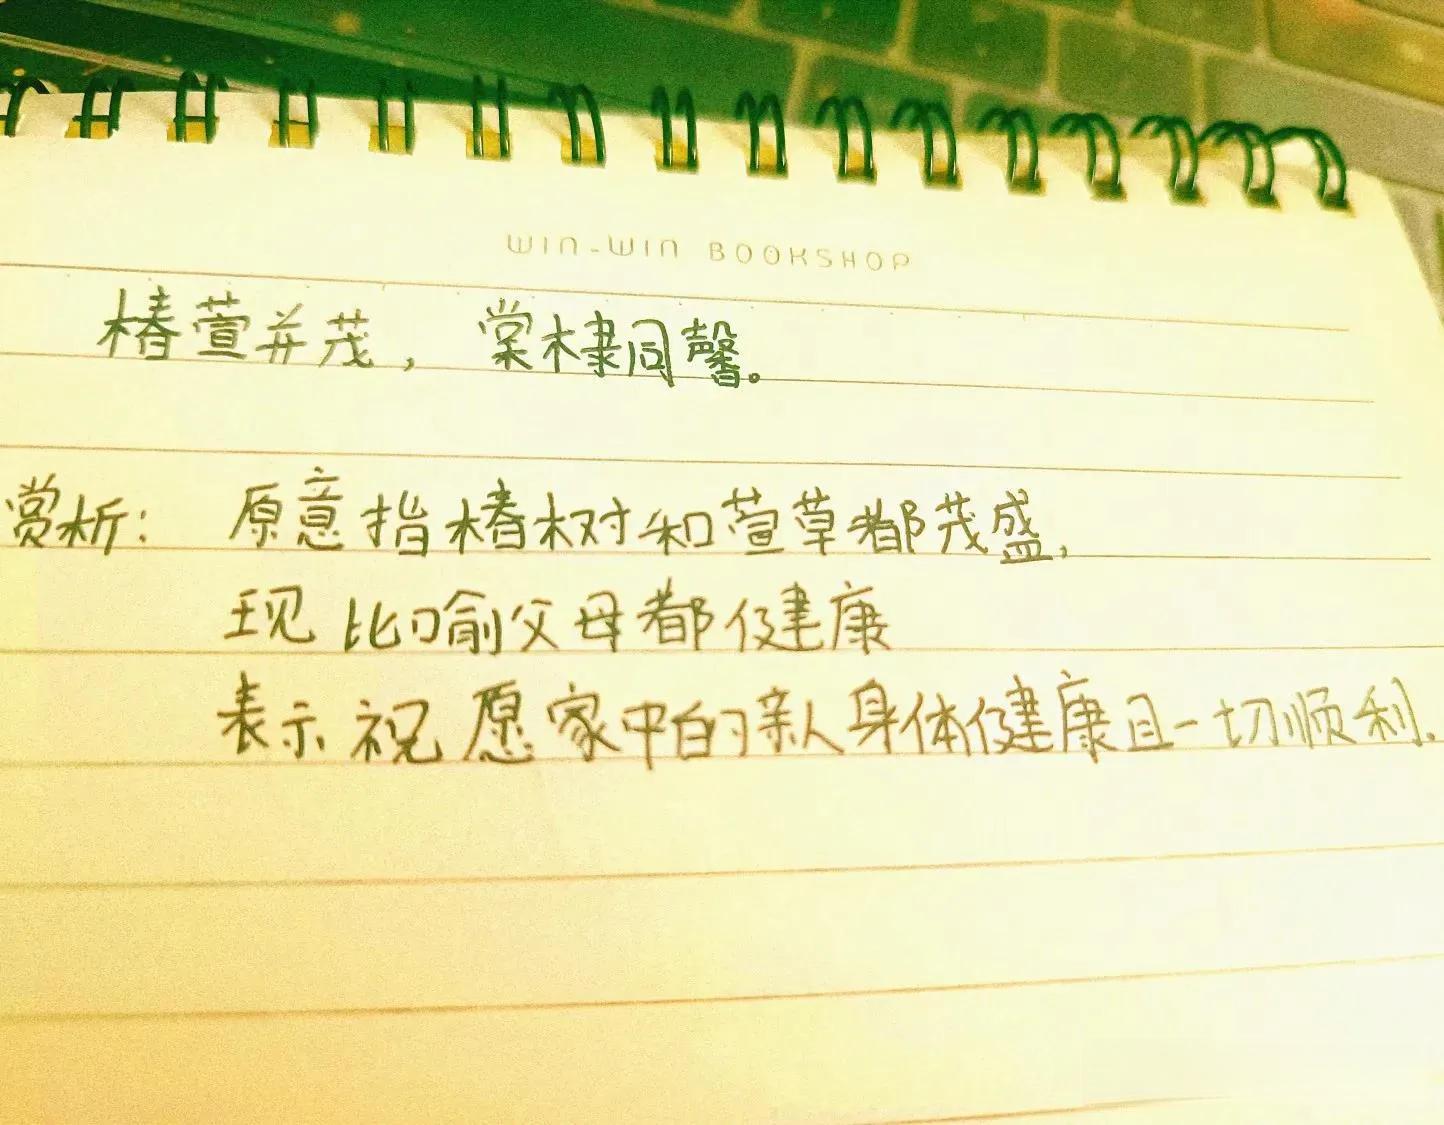 WIN-WIN BOOKSHOP
椿萱并茂，棠棣同馨。
赏析：原意指椿树和萱草都茂盛，
现比喻父母都健康
表示祝愿家中的亲人身体健康且一切顺利.